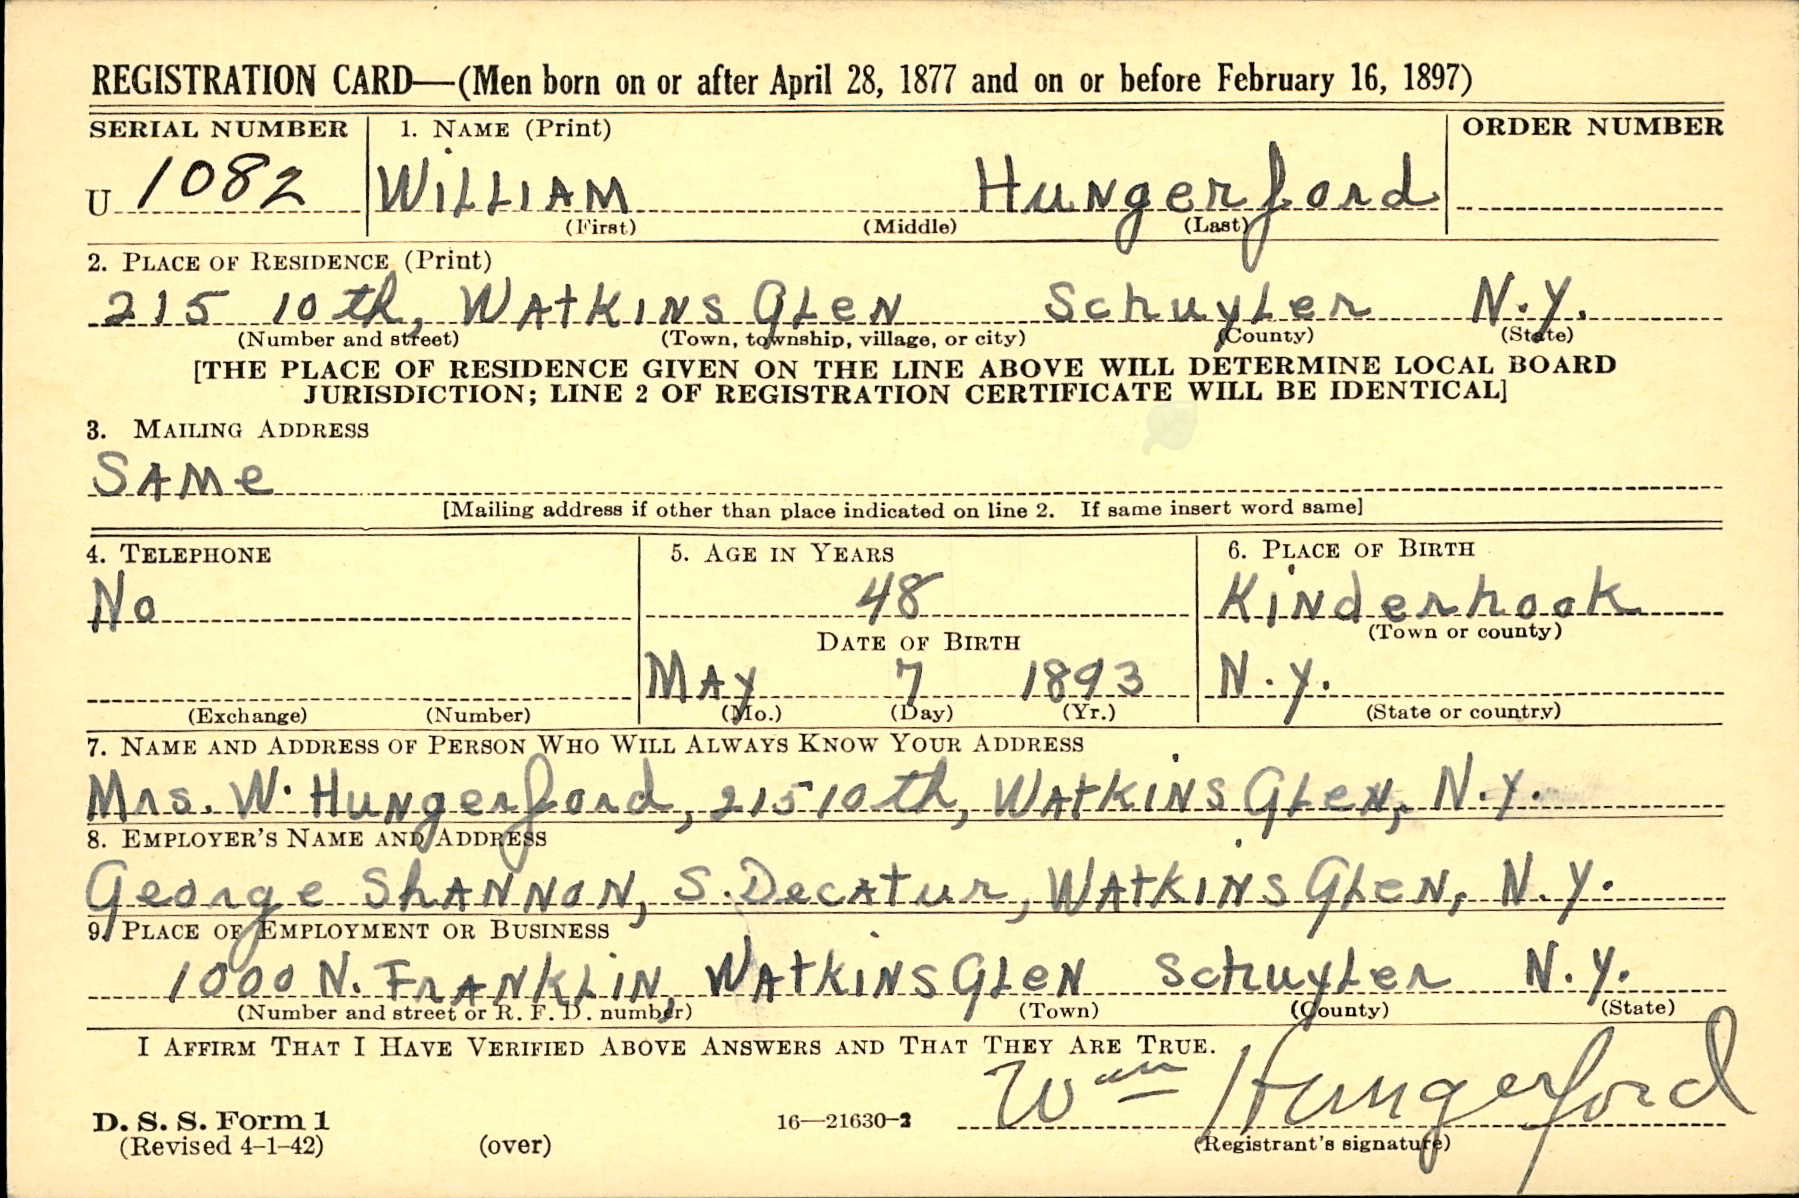 REGISTRATION CARD—(Men born on or after April 28, 1877 and on or before February 16, 1897)
SERIAL NUMBER 1. NAME (Print) ORDER NUMBER
U 1082 WILLIAM Hungerford
(First) (Middle) (Last)
2. PLACE OF RESIDENCE (Print)
215 10th, WAtKINS GLeN SchuyLer N.Y.
(Number and street) (Town, township, village, or city) (County) (State)
[THE PLACE OF RESIDENCE GIVEN ON THE LINE ABOVE WILL DETERMINE LOCAL BOARD
JURISDICTION; LINE 2 OF REGISTRATION CERTIFICATE WILL BE IDENTICAL]
3. MAILING ADDRESS
SAMe
[Mailing address if other than place indicated on line 2. If same insert word same]
4. TELEPHONE 5. AGE IN YEARS 6. PLACE OF BIRTH
No 48 Kinderhook
(Town or county)
DATE OF BIRTH
MAy 7 1893 N.Y.
(Exchange) (Number) (Mo.) (Day) (Yr.) (State or country)
7. NAME AND ADDRESS OF PERSON WHO WILL ALWAYS KNOW YOUR ADDRESS
Mrs. W. Hungerford, 215 10th, WAtKiNS GLeN, N.Y.
8. EMPLOYER'S NAME AND ADDRESS
George ShANNoN, S. Decatur, WAtKiNS GLeN, N.Y.
9. PLACE OF EMPLOYMENT OR BUSINESS
1000 N. FrANKLiN, WAtKiNS GLeN SchuyLer N.Y.
(Number and street or R. F. D. number) (Town) (County) (State)
I AFFIRM THAT I HAVE VERIFIED ABOVE ANSWERS AND THAT THEY ARE TRUE.
Wm Hungerford
D. S. S. Form 1 16—21630-2
(Revised 4-1-42) (over) (Registrant's signature)